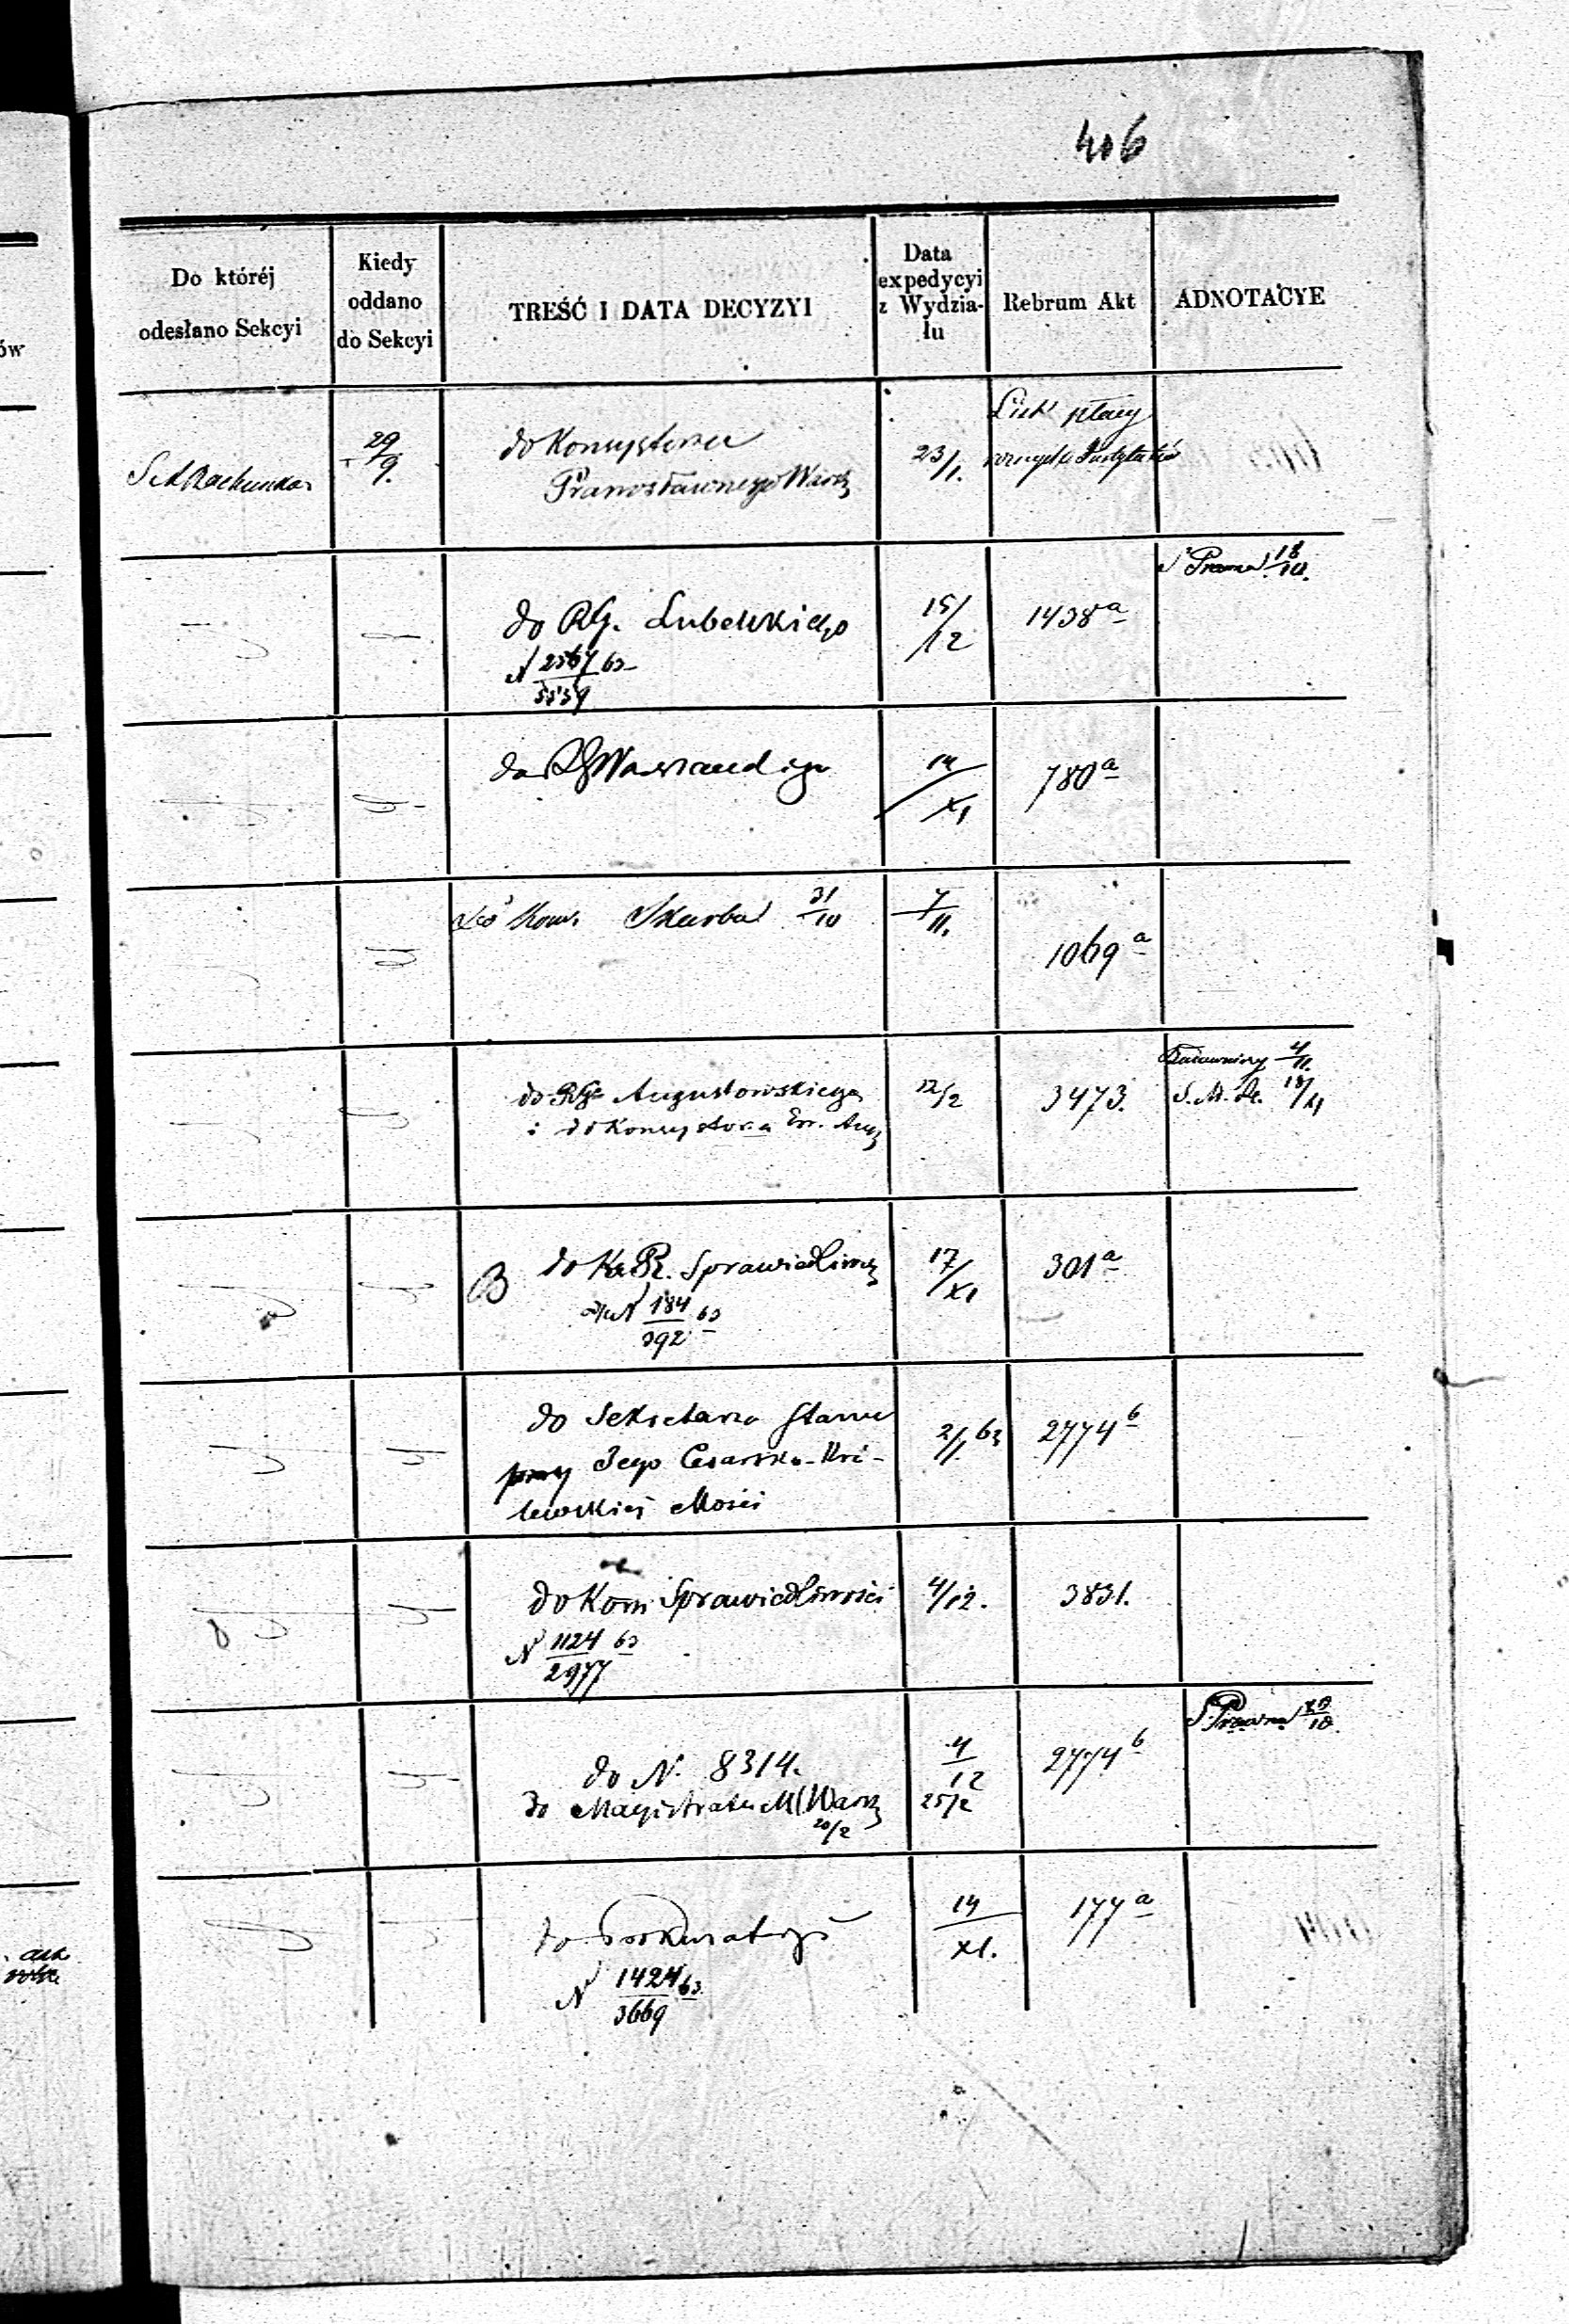 406
Do któréj odesłano Sekcyi
Kiedy oddano do Sekcyi
TREŚĆ I DATA DECYZYI
Data expedycyi z Wydzia-łu
Rebrum Akt
ADNOTACYE
29/9.
do Konsystorza
Prawosławnego Warsz
23/1.
List płacy
S. Prawna 18/10.
do RG. Lubelskiego
N 2367/5539 63
15/12
1438a
do RG Warszawskiego
14/XI
780a
Do Kom. Skarbu 31/10
7/11.
1069a
4/11.
do RG Augustowskiego
i do Konsystorza Ew. Aug
12/2
3473.
18/XI
B do K. R. Sprawiedliwoś
N 184/392 63
17/XI
301a
do Sekretarza Stanu
przy Jego Cesarsko-Kró-
lewskiej Mości
2/1 63
2774b
do Kom Sprawiedliwości
N 1124/2977 63
4/12.
3831.
S. Prawna 29/10.
do N. 8314.
Do Magistratu M. Warsz
20/2
4/12
25/2
2774b
do Prokuratoryi
N 1424/3669 63.
14/XI.
177a
ów